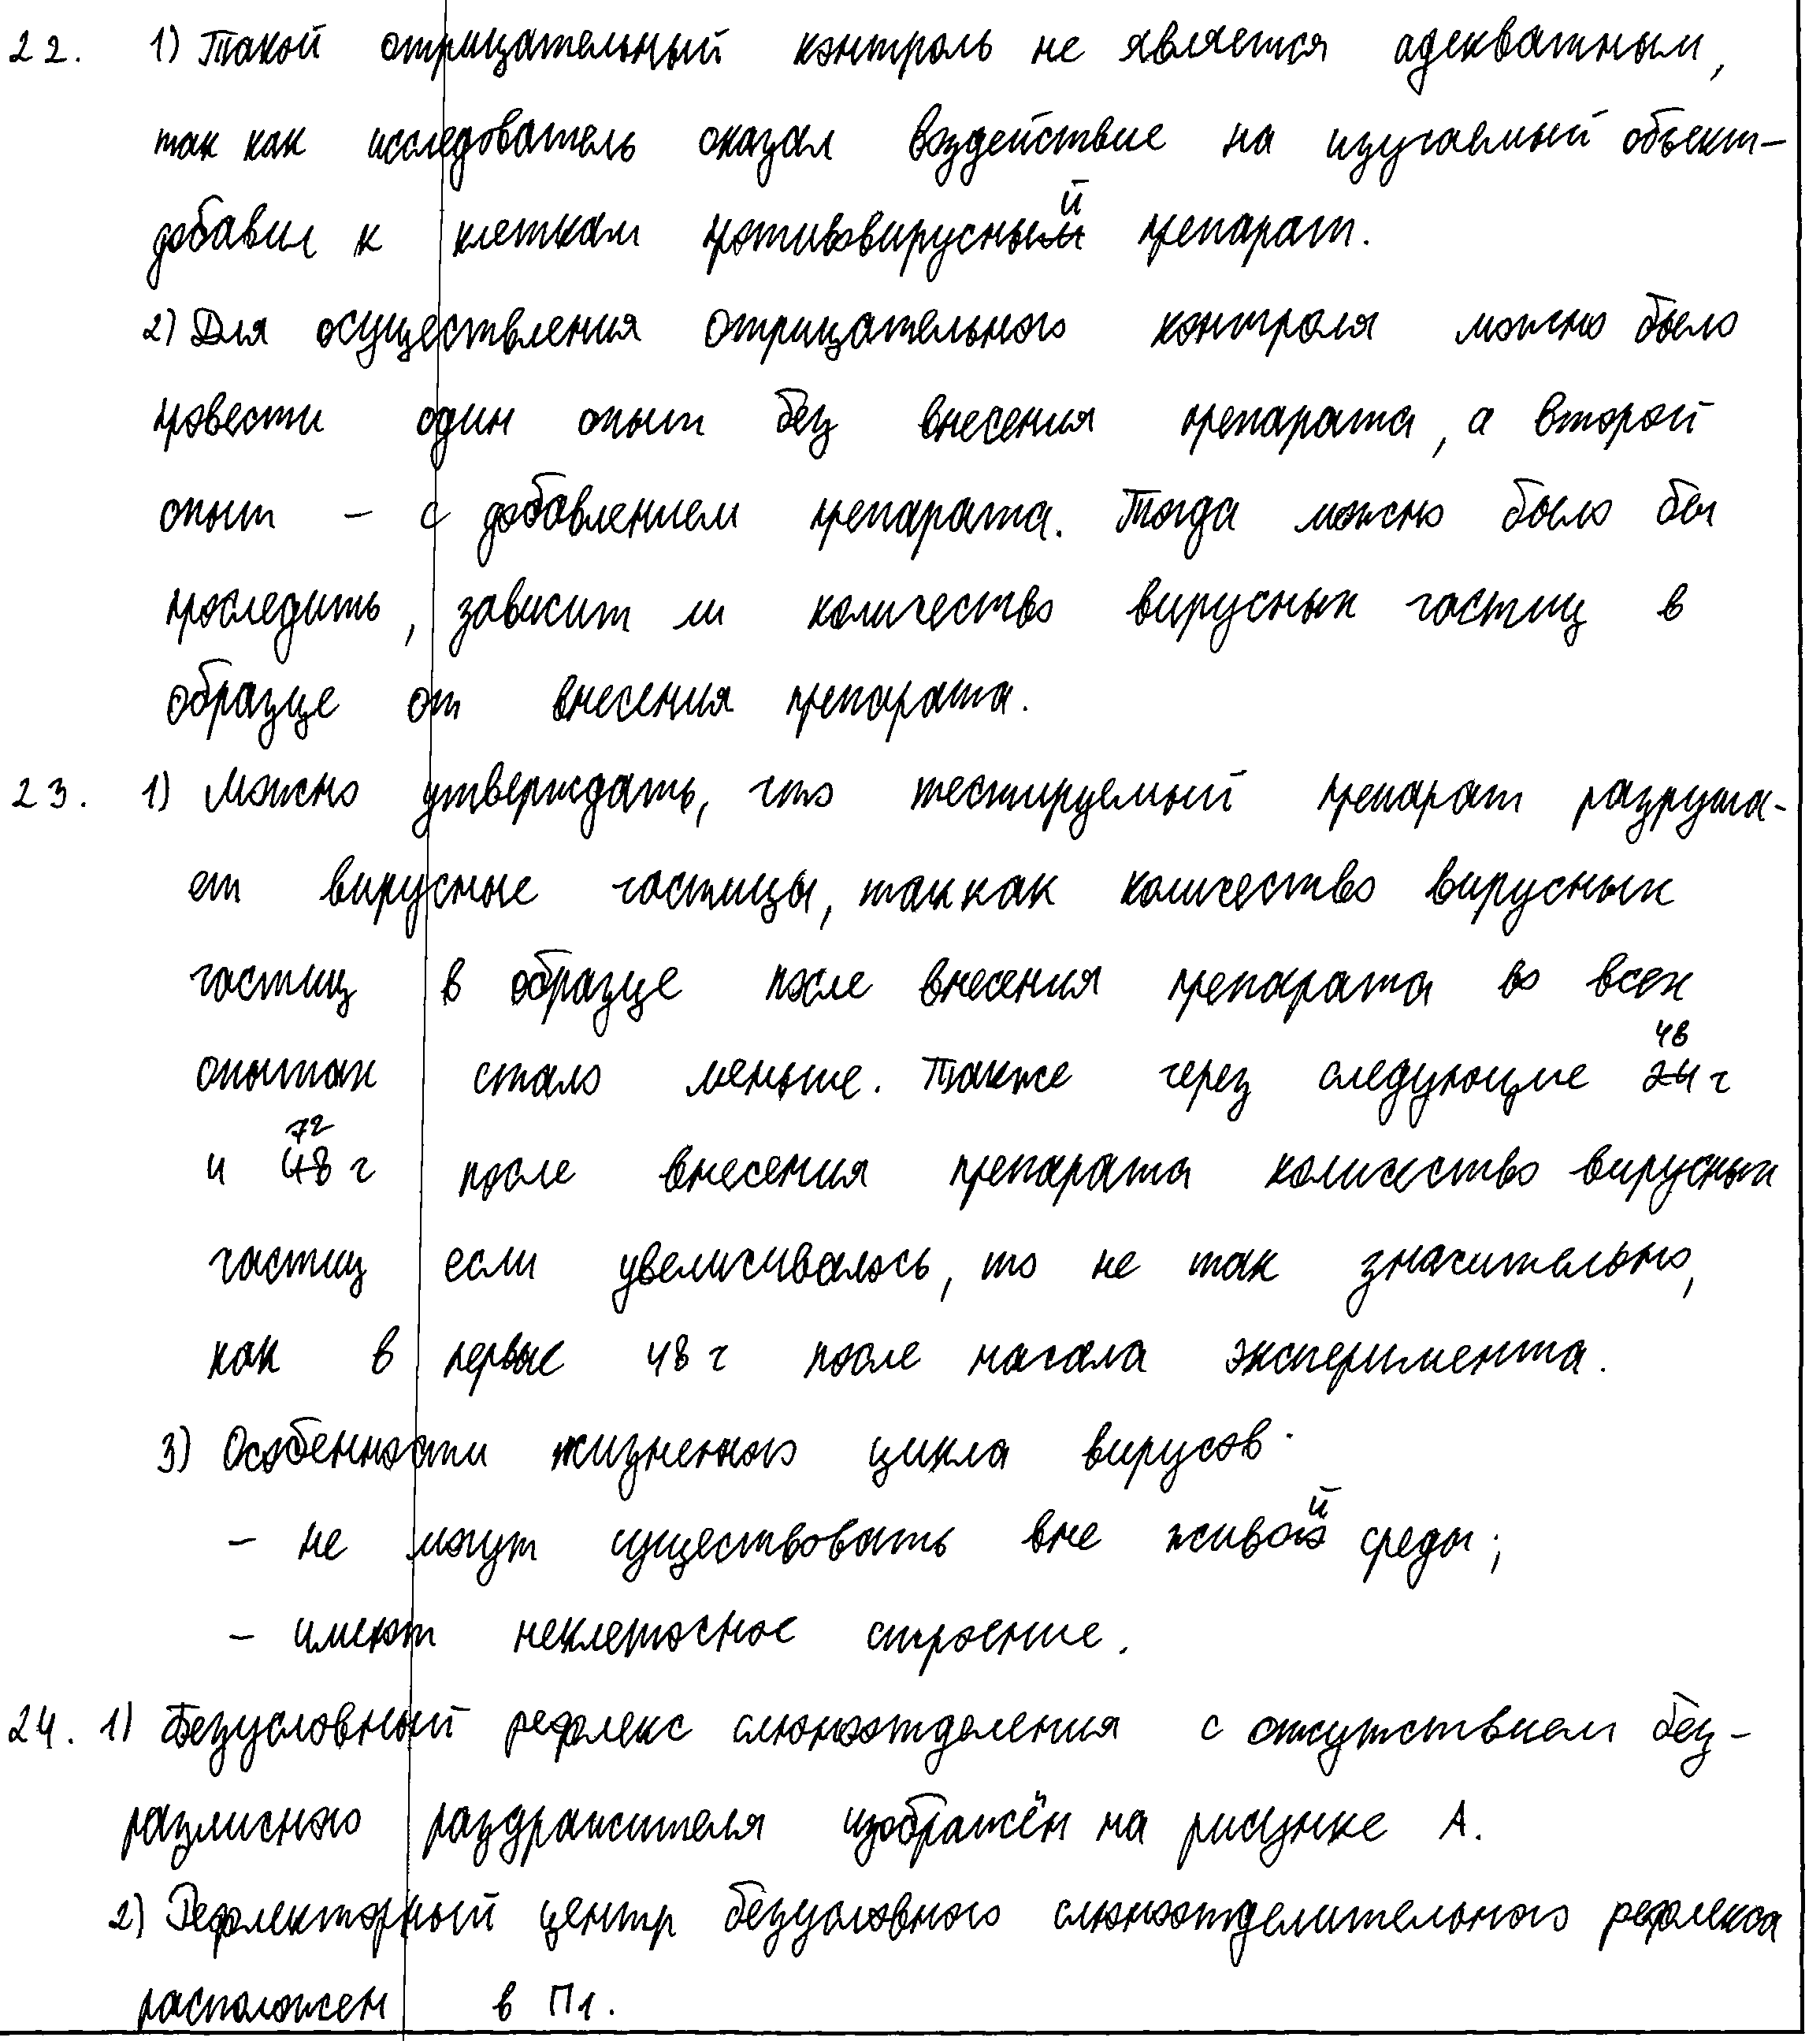 22. 1) Такой отрицательный контроль не является адекватным,
так как исследователь оказал воздействие на изучаемый объект-
добавил к клеткам противовирусный препарат.
2) Для осуществления отрицательного контроля можно было
провести один опыт без внесения препарата, а второй
опыт – с добавлением препарата. Тогда можно было бы
проследить, зависит ли количество вирусных частиц в
образце от внесения препарата.
23. 1) Можно утверждать, что тестируемый препарат разруша-
ет вирусные частицы, так как количество вирусных
частиц в образце после внесения препарата во всех
опытах стало меньше. Также через следующие 48 ч
и 72 ч после внесения препарата количество вирусных
частиц если увеличивалось, то не так значительно,
как в первые 48 ч после начала эксперимента.
3) Особенности жизненного цикла вирусов.
– не могут существовать вне живой среды;
– имеют неклеточное строение.
24. 1) Безусловный рефлекс слюноотделения с отсутствием без-
различного раздражителя изображён на рисунке А.
2) Рефлекторный центр безусловного слюноотделительного рефлекса
расположен в П1.